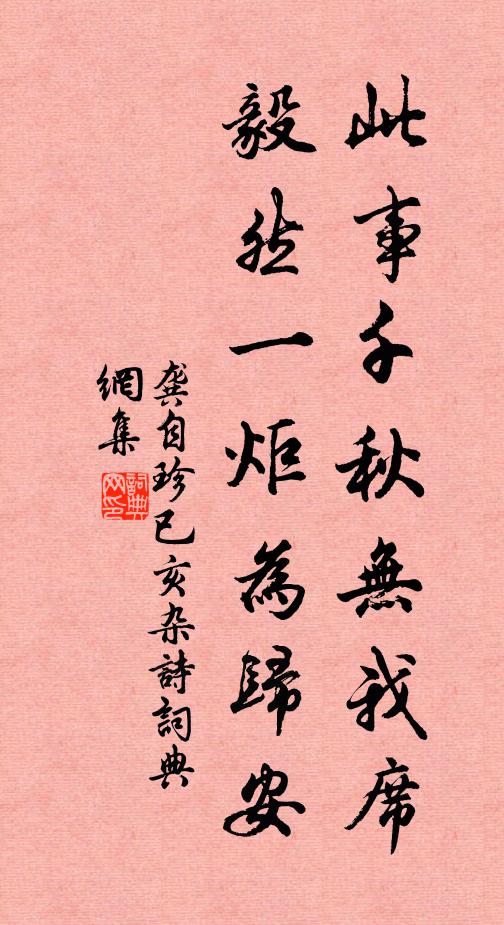 此事千秋無我席
毅然一炬為歸安
龔自珍己亥杂詩詞典
網集
詞典
网印